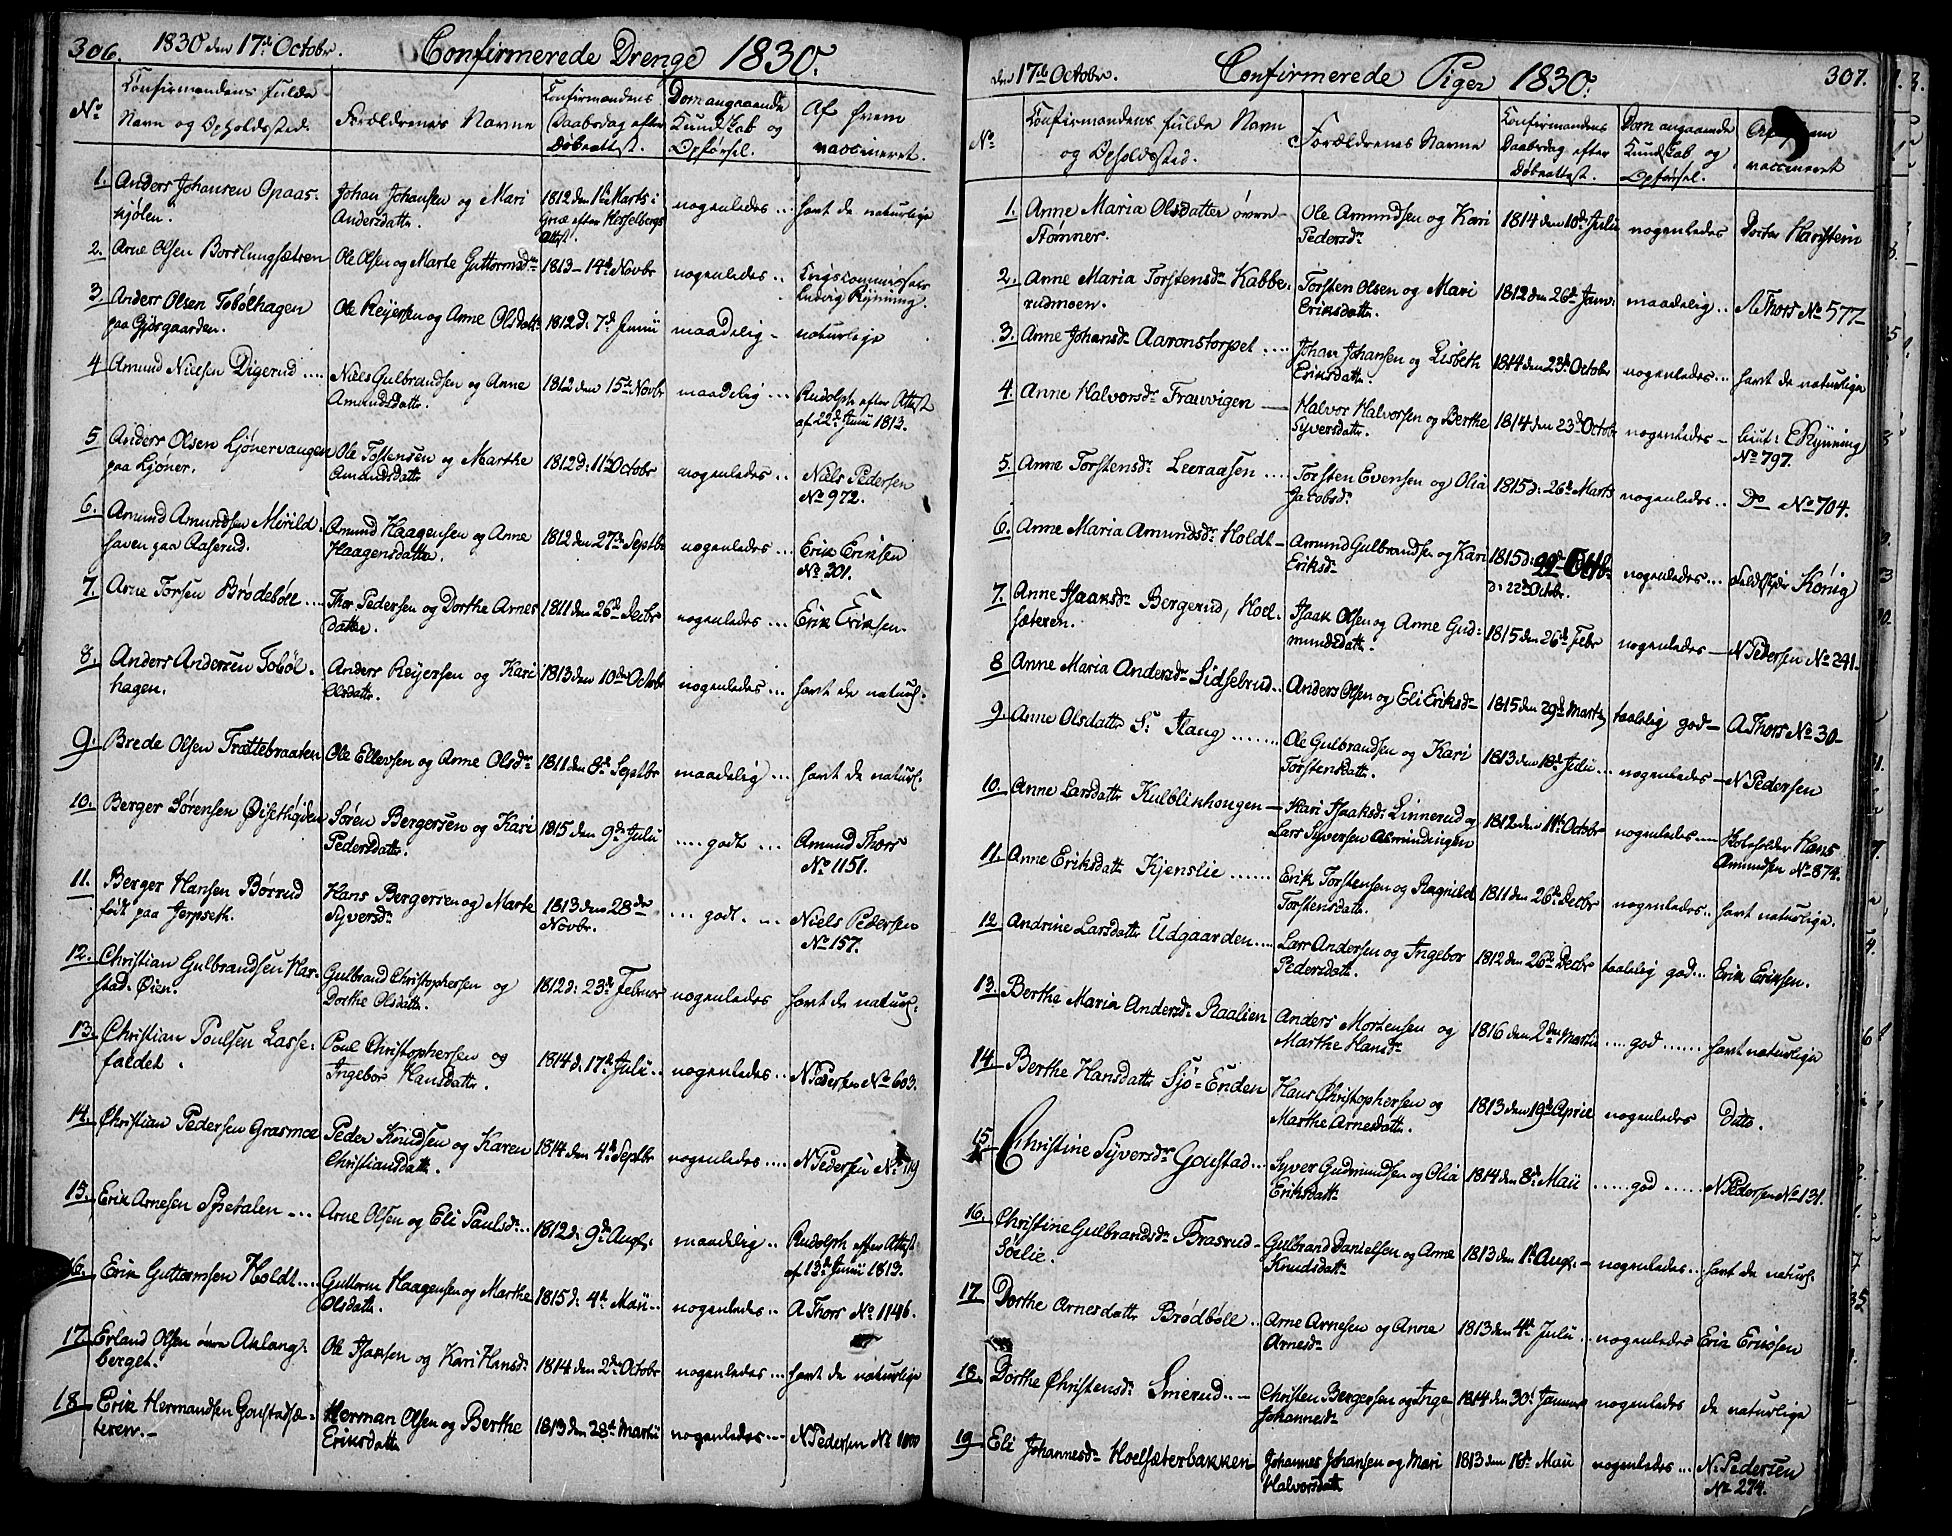 306. 1830 den 17de Octobr. Confirmerede Drenge 1830.
No
Confirmandens fulde
Navn og Opholdssted.
Forældrenes Navne
Confirmandens
Daabsdag efter
Døbeattest.
Dom angaaende
Kundskab og
Opførsel.
Af hvem
vaccineret.
1. Anders Johansen Opaas-
kjølen.
Johan Johansen og Mari
Andersdattr.
1812 den 1te Marts i
efter
Attest.
nogenledes ..
havt de naturlige
2. Arne Olsen Borslungsætren
Ole Olsen og Marte Guttormsdtr
1813 - 14de Novbr
nogenledes ..
Krigscommissair
Ludvig Rynning.
3. Anders Olsen Tobølhagen
paa Gjørgaarden.
Ole Reÿersen og Anne Olsdattr
1812 d. 7de Junii
maadelig -
naturlige
4 Amund Nielsen Digerud ....
Niels Gulbrandsen og Anne
Amundsdattr.
1812 den 15de Novbr
maadelig ...
Rudolph efter Attest
af 22de Junii 1813.
5 Anders Olsen Ljønervangen
paa Ljøner.
Ole Tostensen og Marthe
Amundsdattr
1812 d. 11te Octobr
nogenledes ..
Niels Pedersen
No 972.
6. Amund Amundsen Mørild-
haven paa Aaserud.
Amund Haagensen og Anne
Haagensdatter.
1812 den 27de Septbr
nogenledes ...
Erik Eriksen
No 301.
7. Arne Torsen Brødebøle ....
Thor Pedersen og Dorthe Arnes
datter.
1811 den 26de Decbr
nogenledes ...
Erik Eriksen.
8. Anders Andersen Tobøl-
hagen.
Anders Reÿersen og Kari
Olsdattr.
1813 den 10de Octobr
nogenledes ...
havt de naturl.
9. Brede Olsen Trættebraaten
Ole Ellevsen og Anne Olsdtr
1811 den 8de Septbr
maadelig ...
havt de naturl.
10. Berger Sørensen
Søren Bergersen og Kari
Pedersdattr.
1815 den 9de Julii
.... godt ...
Amund Thors
No 1151.
11. Berger Hansen Børrud
født paa Jerpseth.
Hans Bergersen og Marte
Syversdr
1813 den 28de
Novbr.
... godt. ...
Niels Pedersen
No 157.
12. Christian Gulbrandsen Har-
stad-Øien.
Gulbrand Christophersen og
Dorthe Olsdattr.
1812 d. 23de Februar
nogenledes
havt de naturl.
13. Christian Poulsen Lasse-
faldet.
Poul Christophersen og
Ingebor Hansdattr.
1814 d. 17de Julii ..
nogenledes ..
N Pedersen No 603.
14. Christian Pedersen Grasmoe
Peder Knudsen og Karen
Christiansdattr.
1814 den 4de Septbr
nogenledes ....
N Pedersen No 719
15. Erik Arnesen Spetalen ....
Arne Olsen og Eli Paulsdr...
1812 d. 9de Augs.
maadelig ..
Rudolph efter Attest
af 13de Junii 1813.
16. Erik Guttormsen Holdt ....
Guttorm Haagensen og Marthe
Olsdattr.
1815 d. 4de Maii ..
nogenledes ..
A Thors No 1146.
17. Erland Olsen øvre Aklang-
berget.
Ole Isaksen og Kari Hansdr
1814 den 2den Octobr
nogenledes ...
havt de naturlige
18 Erik Hermandsen Goustadsæ-
teren. -
Herman Olsen og Berthe
Eriksdattr
1813 den 28de Martii
nogenledes ...
N Pedersen No 1000
den 17de Octobr. Confirmerede Piger 1830. 307.
No
Confirmandens fulde Navn
og Opholdssted.
Forældrenes Navne
Confirmandens
Daabsdag efter
Døbeattest.
Dom angaaende
Kundskab og
Opførsel.
Af hvem
vaccineret
1. Anne Maria Olsdatter øvre
Stømner.
Ole Amundsen og Kari
Pedersdr
1814 den 10de Julii
nogenledes
Doctor
2. Anne Maria Torstensdr Kabbe-
rudmoen.
Torsten Olsen og Mari
Eriksdattr.
1812 den 26de Janr.
maadelig ..
A Thors No 577-
3. Anne Johansdr Aaronstorpet ....
Johan Johansen og Lisbeth
Eriksdattr.
1814 den 23de Octobr
nogenledes ...
havt de naturlige
4. Anne Halvorsdr Frauvigen -
Halvor Halvorsen og Berthe
Syversdattr.
1814 den 23de Octobr
nogenledes -
Lieut: C Rynning
No 797.
5. Anne Torstensdr Leeraasen ....
Torsten Evensen og Olia
Jacobsdr
1815 d. 26de Marts
nogenledes ..
Do No 704.
6. Anne Maria Amundsdr Holdt -
Amund Gulbrandsen og Kari
Eriksdr
1815 d. 22de Octb.
d: 22de Octobr.
nogenledes ...
König
7. Anne Isaaksdr Bergerud, Hoel-
sæteren.
Isaak Olsen og Anne Gud-
mundsdattr.
1815 den 26de Febr
nogenledes -
N Pedersen No 241.
8 Anne Maria Andersdr Sidsebrud..
Anders Olsen og Eli Eriksdr
1815 den 29de Marts
taalelig god -
A Thors No 30-
9. Anne Olsdattr Sr Haug ........
Ole Gulbrandsen og Kari
Torstensdattr.
1813 den 18de Julii ...
nogenledes -
N Pedersen
10. Anne Larsdattr Kulblikhougen -
Kari Isaaksdr Linnerud og
Lars Syversen Asmundingen
1812 den 11te Octobr
nogenledes ...
Hans
Amundsen No 874.
11. Anne Eriksdattr Kjenslie ......
Erik Torstensen og Ragnild
Torstensdattr.
1811 den 26de Decbr
nogenledes ..
havt naturlige.
12 Andrine Larsdattr Udgaarden ....
Lars Andersen og Ingebor
Pedersdattr.
1812 den 26de Decbr
taalelig god ...
Erik Eriksen.
13. Berthe Maria Andersdr Raalien
Anders Mortensen og
Marthe Hansdr
1816 den 2den Martii
.... god ......
havt naturlige
14. Berthe Hansdattr Sjø-Enden
Hans Christophersen og
Marthe Arnesdattr.
1813 den 19de April
nogenledes
Ditto.
15 Christine Syversdr Goustad ...
Syver Gudmundsen og Olia
Eriksdattr
1814 den 8de Maii
..... god .....
N. Pedersen No 131.
16. Christine Gulbrandsdr Brasrud-
Sørlie.
Gulbrand Danielsen og Anne
Knudsdattr
1813 den 1te Augs. -
nogenledes ..
havt de naturl.
17. Dorthe Arnesdattr Brødbøll ..
Arne Arnesen og Anne
Arnesdr
1813 den 4de Julii ..
nogenledes
Erik Erissen
18. Dorthe Christensdr Smerud .. -
Christen Bergersen og Inge
Johannesdr
1814 den 30te Januar
nogenledes
de naturlige
19 Eli Johannesdr Hoelsæterbakken
Johannes Johansen og Mari
Halvorsdattr
1813 den 16de Maii
nogenledes ...
N. Pedersen
No 274.